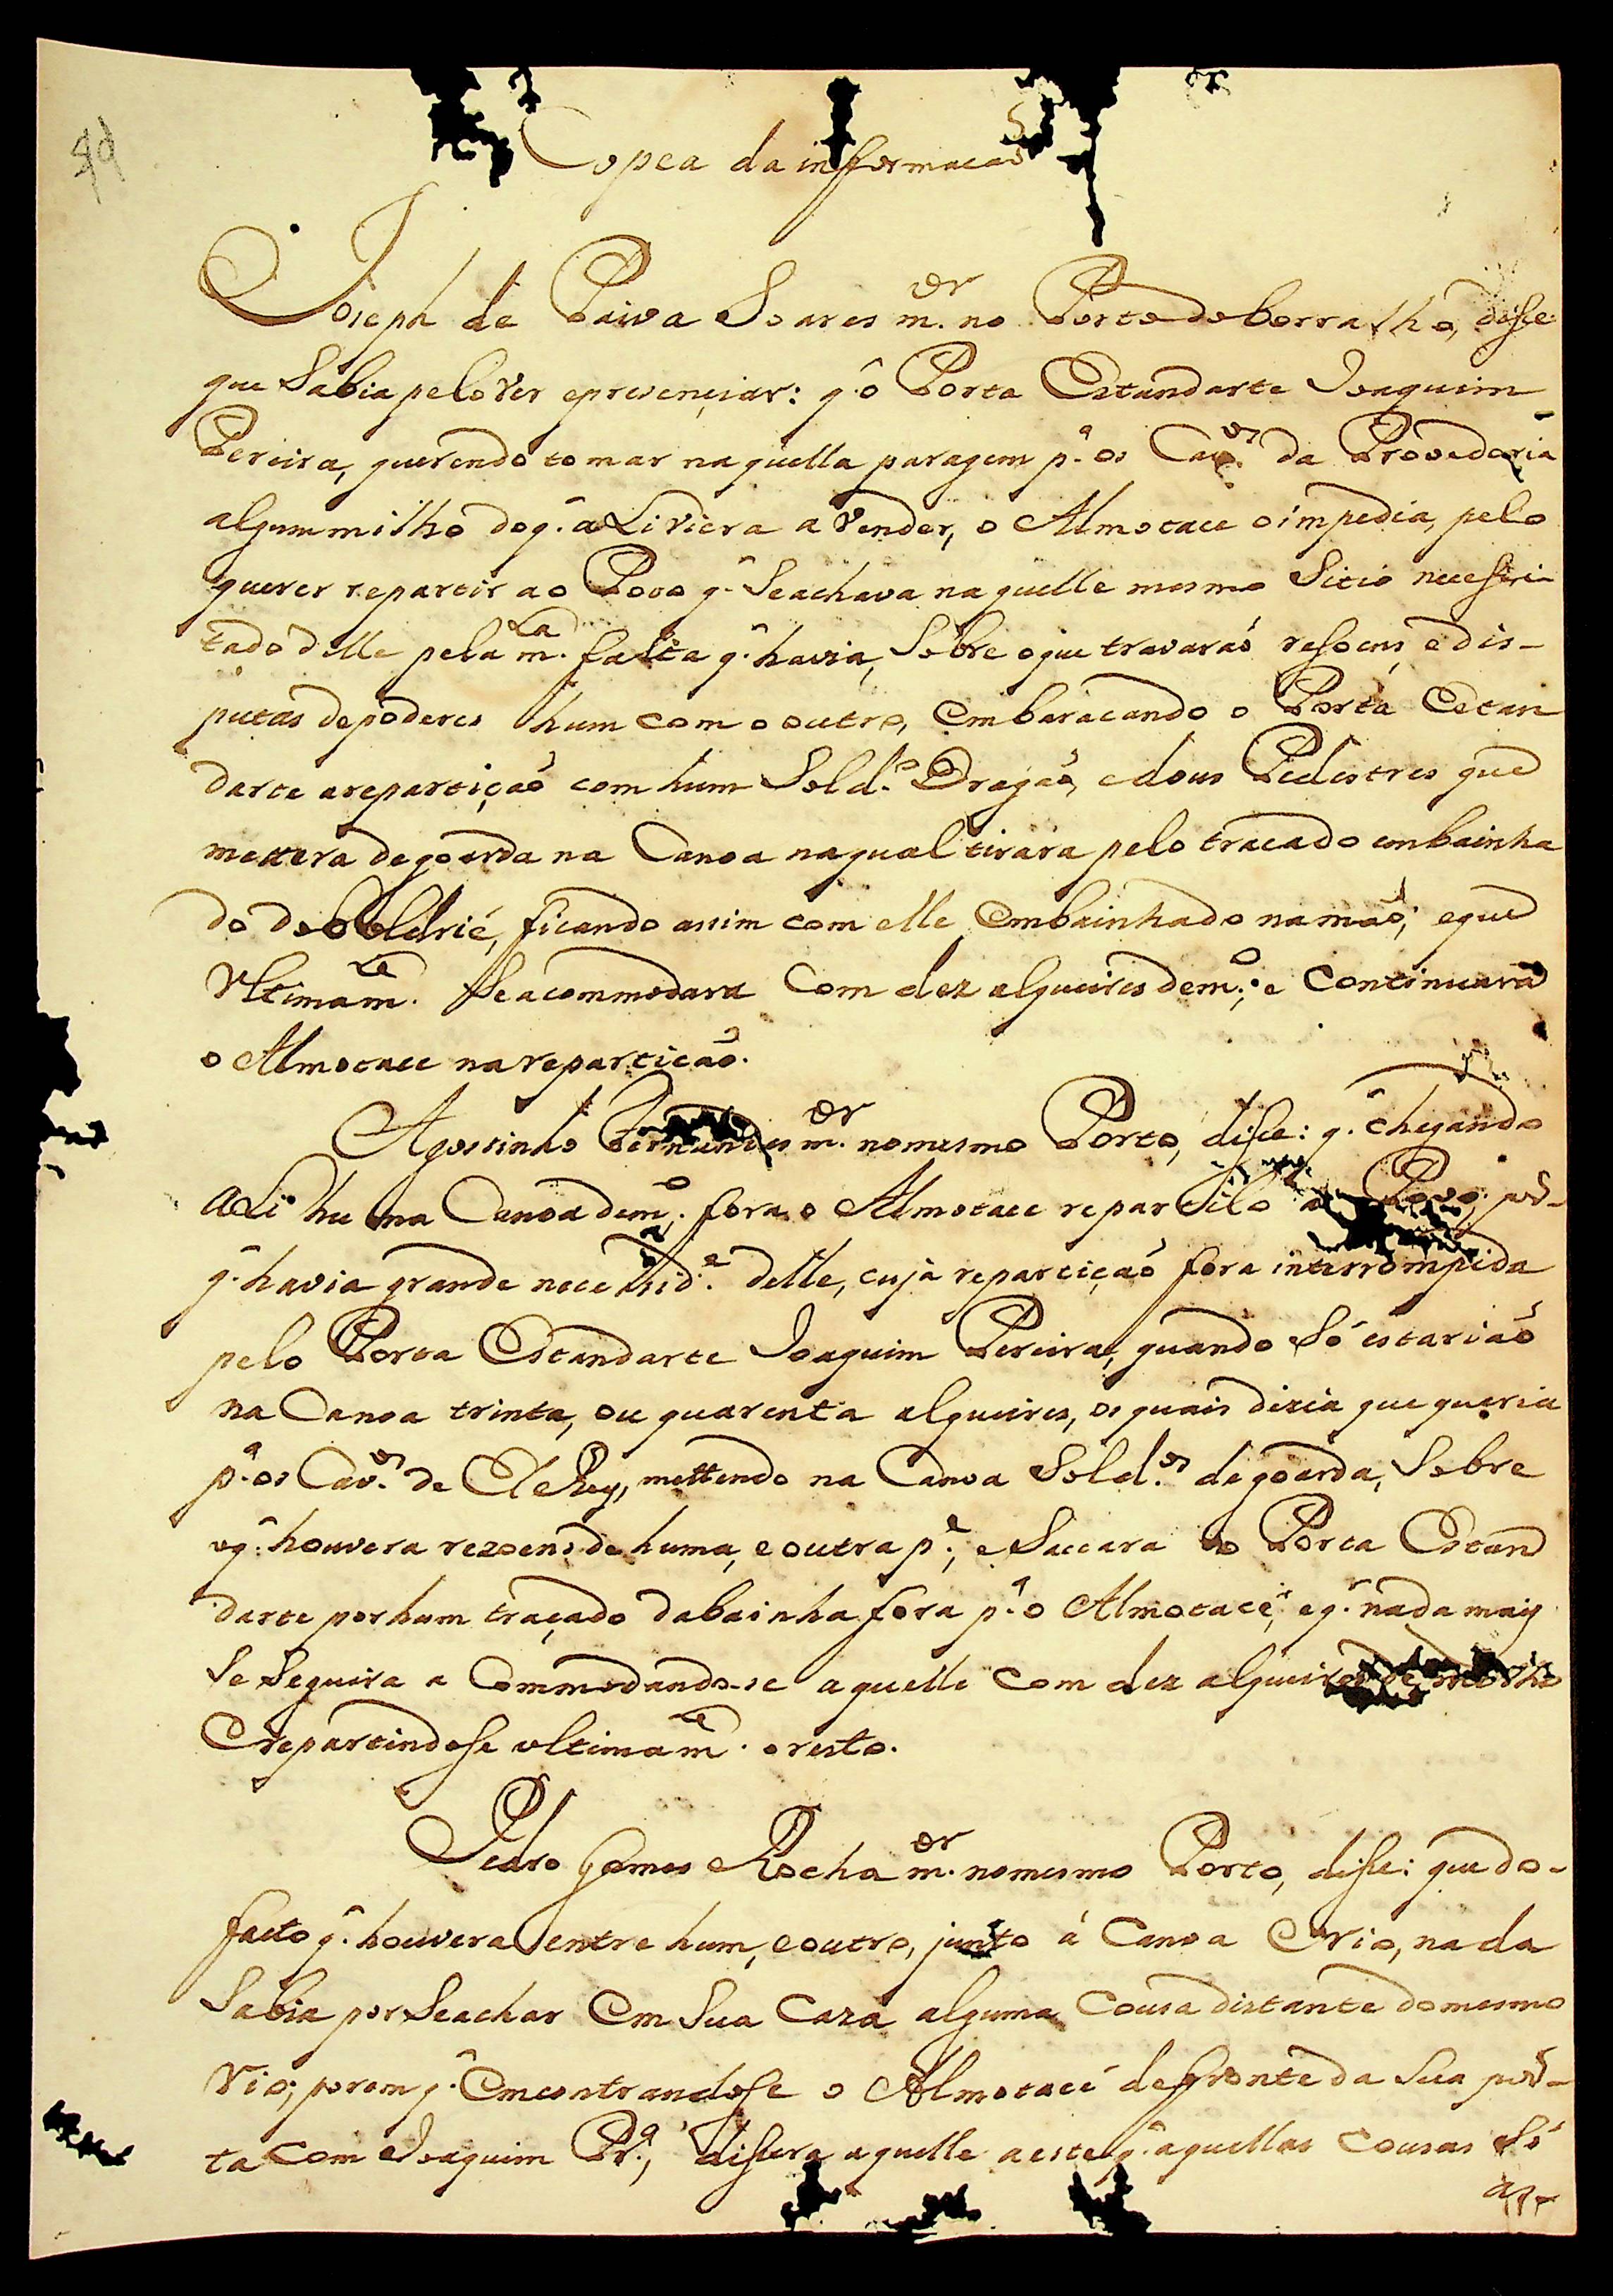 Copea da informacaõ
Joseph de Paiva Soares m.or no Porto do borralho, disse
que Sabia pelo ver e prezençiar: q̃ o Porta Estandarte Joaquim
Pereira, querendo tomar naquella paragem p.a os Cav.os da Provedoria
algum milho do q̃ aLi viera a vender, o Almotace o impedia, pelo
querer repartir ao Povo q̃ Se achava naquelle mesmo Sitio necessi-
tado delle pela m.ta falta q̃ havia, Sobre o que travaraõ resoens, e dis-
putas de poderes hum com o outro, Embaracando o Porta Estan
darte a repartiçaõ com hum Sold.o Dragaõ, e dous Pedestres que
mettera de goarda na Canoa na qual tirara pelo tracado embainha
do do Boldrié, ficando assim com elle Embainhado na maõ; e que
Vltimam.te Se acommodara Com dez alqueires de m.o; e Continuara
o Almotace na reparticaõ.
Agostinho Fernandes m.or no mesmo Porto, disse: q̃ chegando
aLi huma Canoa de m.o; fora o Almotace repartilo ao Povo, por-
q̃ havia grande necessid.e delle, cuja repartiçaõ fora interrompida
pelo Porta Estandarte Joaquim Pereira, quando Só estariaõ
na Canoa trinta, ou quarenta alqueires, os quais dizia que queria
p.a os Cav.os de ElRey, mettendo na Canoa Sold.os de goarda, Sobre
o q̃ houvera rezoens de huma, e outra p.e, e Saccara o Porta Estan
darte por hum traçado da bainha fora p.a o Almotace, e q̃ nada mais
Se Seguira a Commodando-se aquelle com dez alqueires de milho
E repartindose vltimam.te o resto.
Pedro Gomes Rocha m.or no mesmo Porto, disse: que do-
facto q̃ houvera entre hum, e outro, junto á Canoa E rio, nada
Sabia por Se achar Em Sua Caza alguma Cousa distante do mesmo
Rio; porem q̃ Emcontrandose o Almotacé defronte da Sua por-
ta com Joaquim Pr.a, dissera aquelle a este q̃ aquellas cousas Só